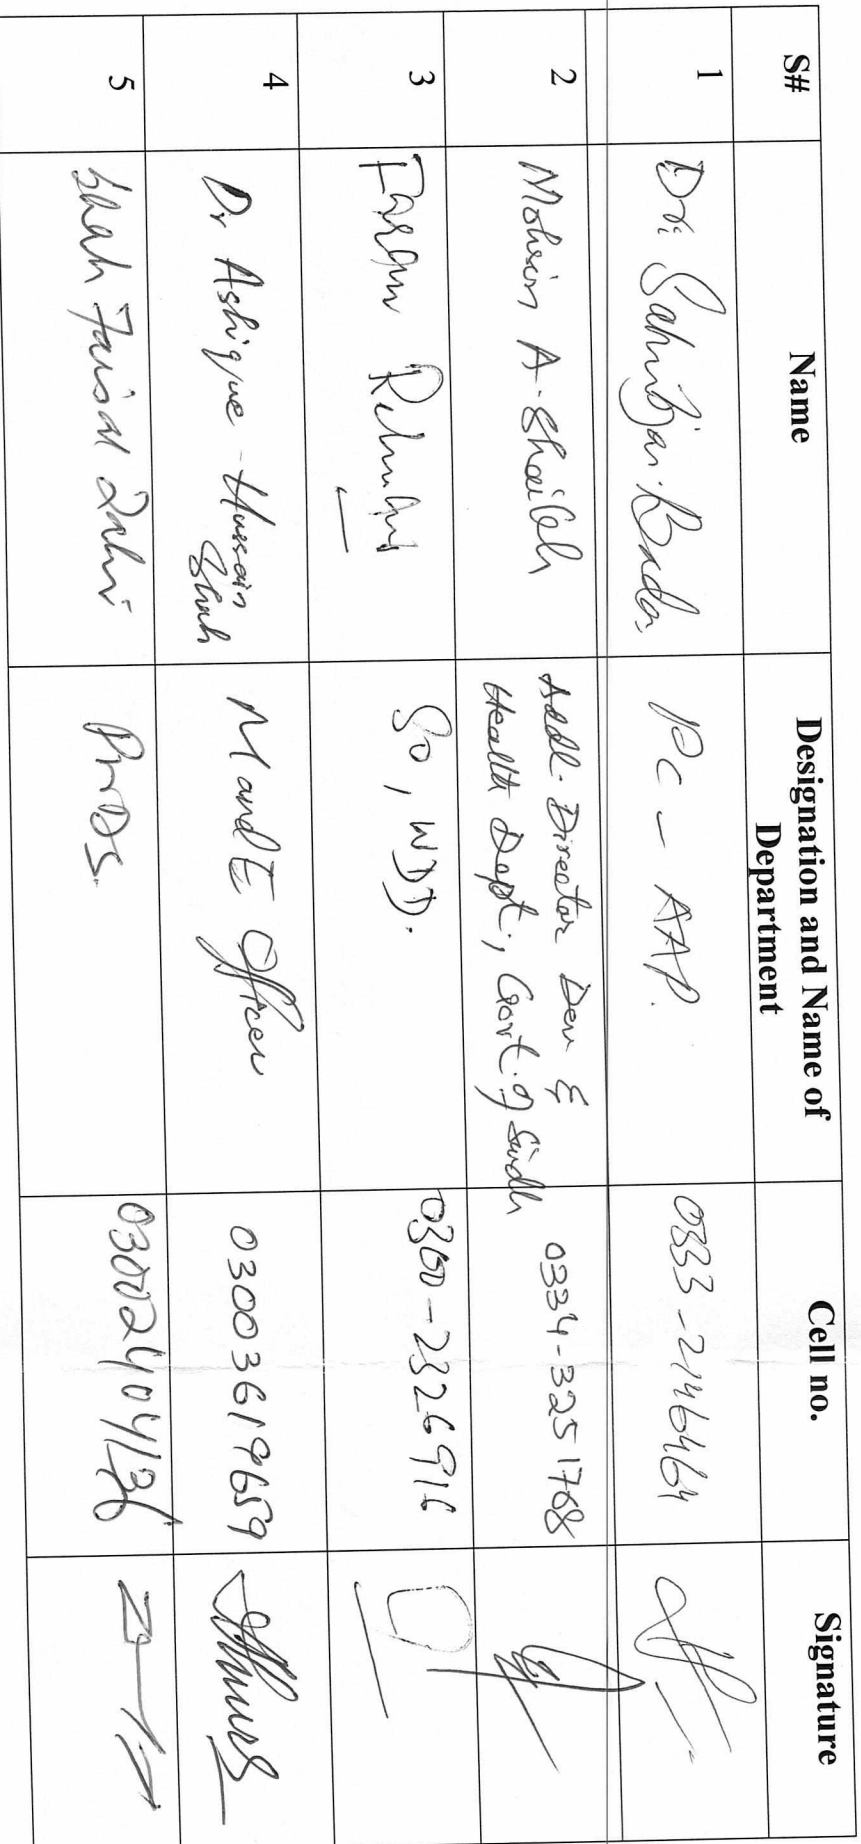 S# Name Designation and Name of Department Cell no. Signature
1 Dr. PC - AAP. 0333-2146464
2 Mohsin A. Shaikh Addl. Director Dev &
Health Dept; Govt. of Sindh 0334-3251768
3 SO, WDD. 0300-2326916
4 Dr Ashique Hussain
Shah M and E Officer 03003619659
5 Shah Faisal 03002404136